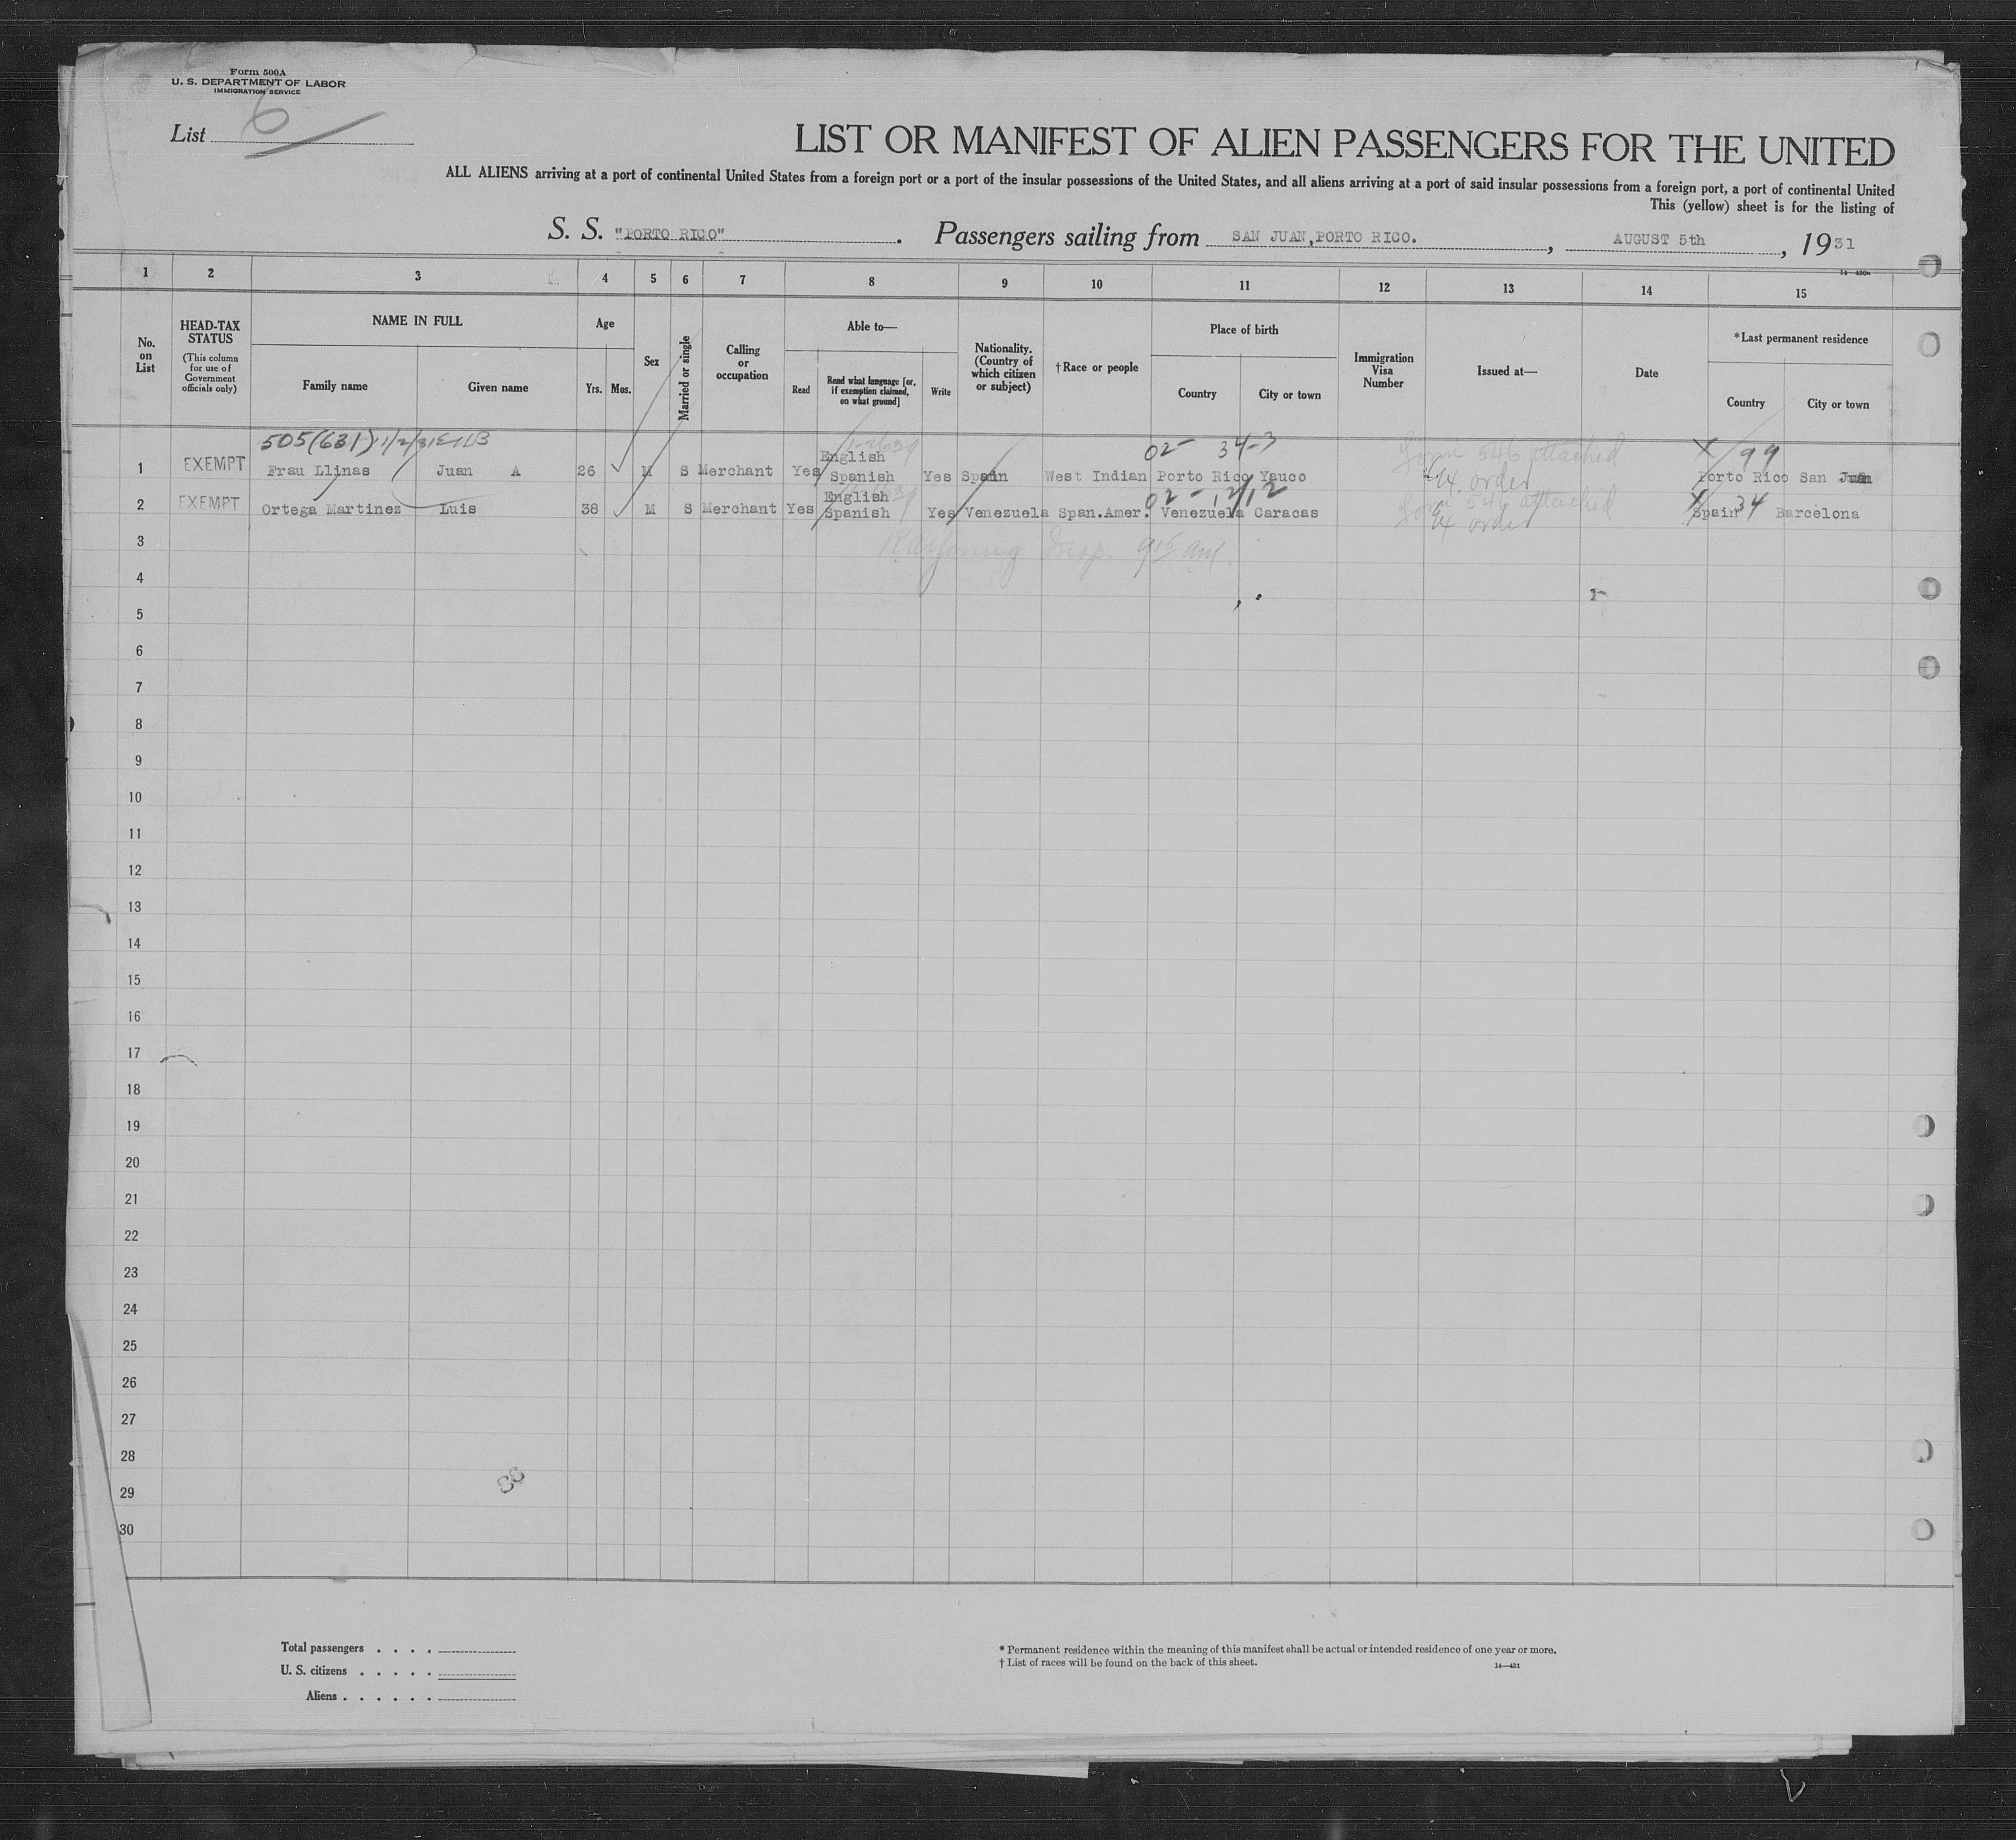 Form 500A
U. S. DEPARTMENT OF LABOR
IMMIGRATION SERVICE
List 6
LIST OR MANIFEST OF ALIEN PASSENGERS FOR THE UNITED
ALL ALIENS arriving at a port of continental United States from a foreign port or a port of the insular possessions of the United States, and all aliens arriving at a port of said insular possessions from a foreign port, a port of continental United
This (yellow) sheet is for the listing of
S. S. "PORTO RICO". Passengers sailing from SAN JUAN, PORTO RICO., AUGUST 5th, 1931
1 2 3 4 5 6 7 8 9 10 11 12 13 14 15
No. on List
HEAD-TAX STATUS (This column for use of Government officials only)
NAME IN FULL
Family name Given name
Age
Yrs. Mos.
Sex
Married or single
Calling or occupation
Able to—
Read Read what language [or, if exemption claimed, on what ground] Write
Nationality. (Country of which citizen or subject)
†Race or people
Place of birth
Country City or town
Immigration Visa Number
Issued at—
Date
*Last permanent residence
Country City or town
505(631) 02- 34-3 Form 546 attached X 99
1 EXEMPT Frau Llinas Juan A 26 M S Merchant Yes English Spanish Yes Spain West Indian Porto Rico Yauco order Porto Rico San Juan
02- 12/12 Form 546 attached X 34
2 EXEMPT Ortega Martinez Luis 38 M S Merchant Yes English Spanish Yes Venezuela Span.Amer. Venezuela Caracas order Spain Barcelona
3 Insp. 9 15 am.
4
5
6
7
8
9
10
11
12
13
14
15
16
17
18
19
20
21
22
23
24
25
26
27
28
29
30
88
Total passengers . . . .
U. S. citizens . . . . .
Aliens . . . . . .
* Permanent residence within the meaning of this manifest shall be actual or intended residence of one year or more.
† List of races will be found on the back of this sheet. 14—431